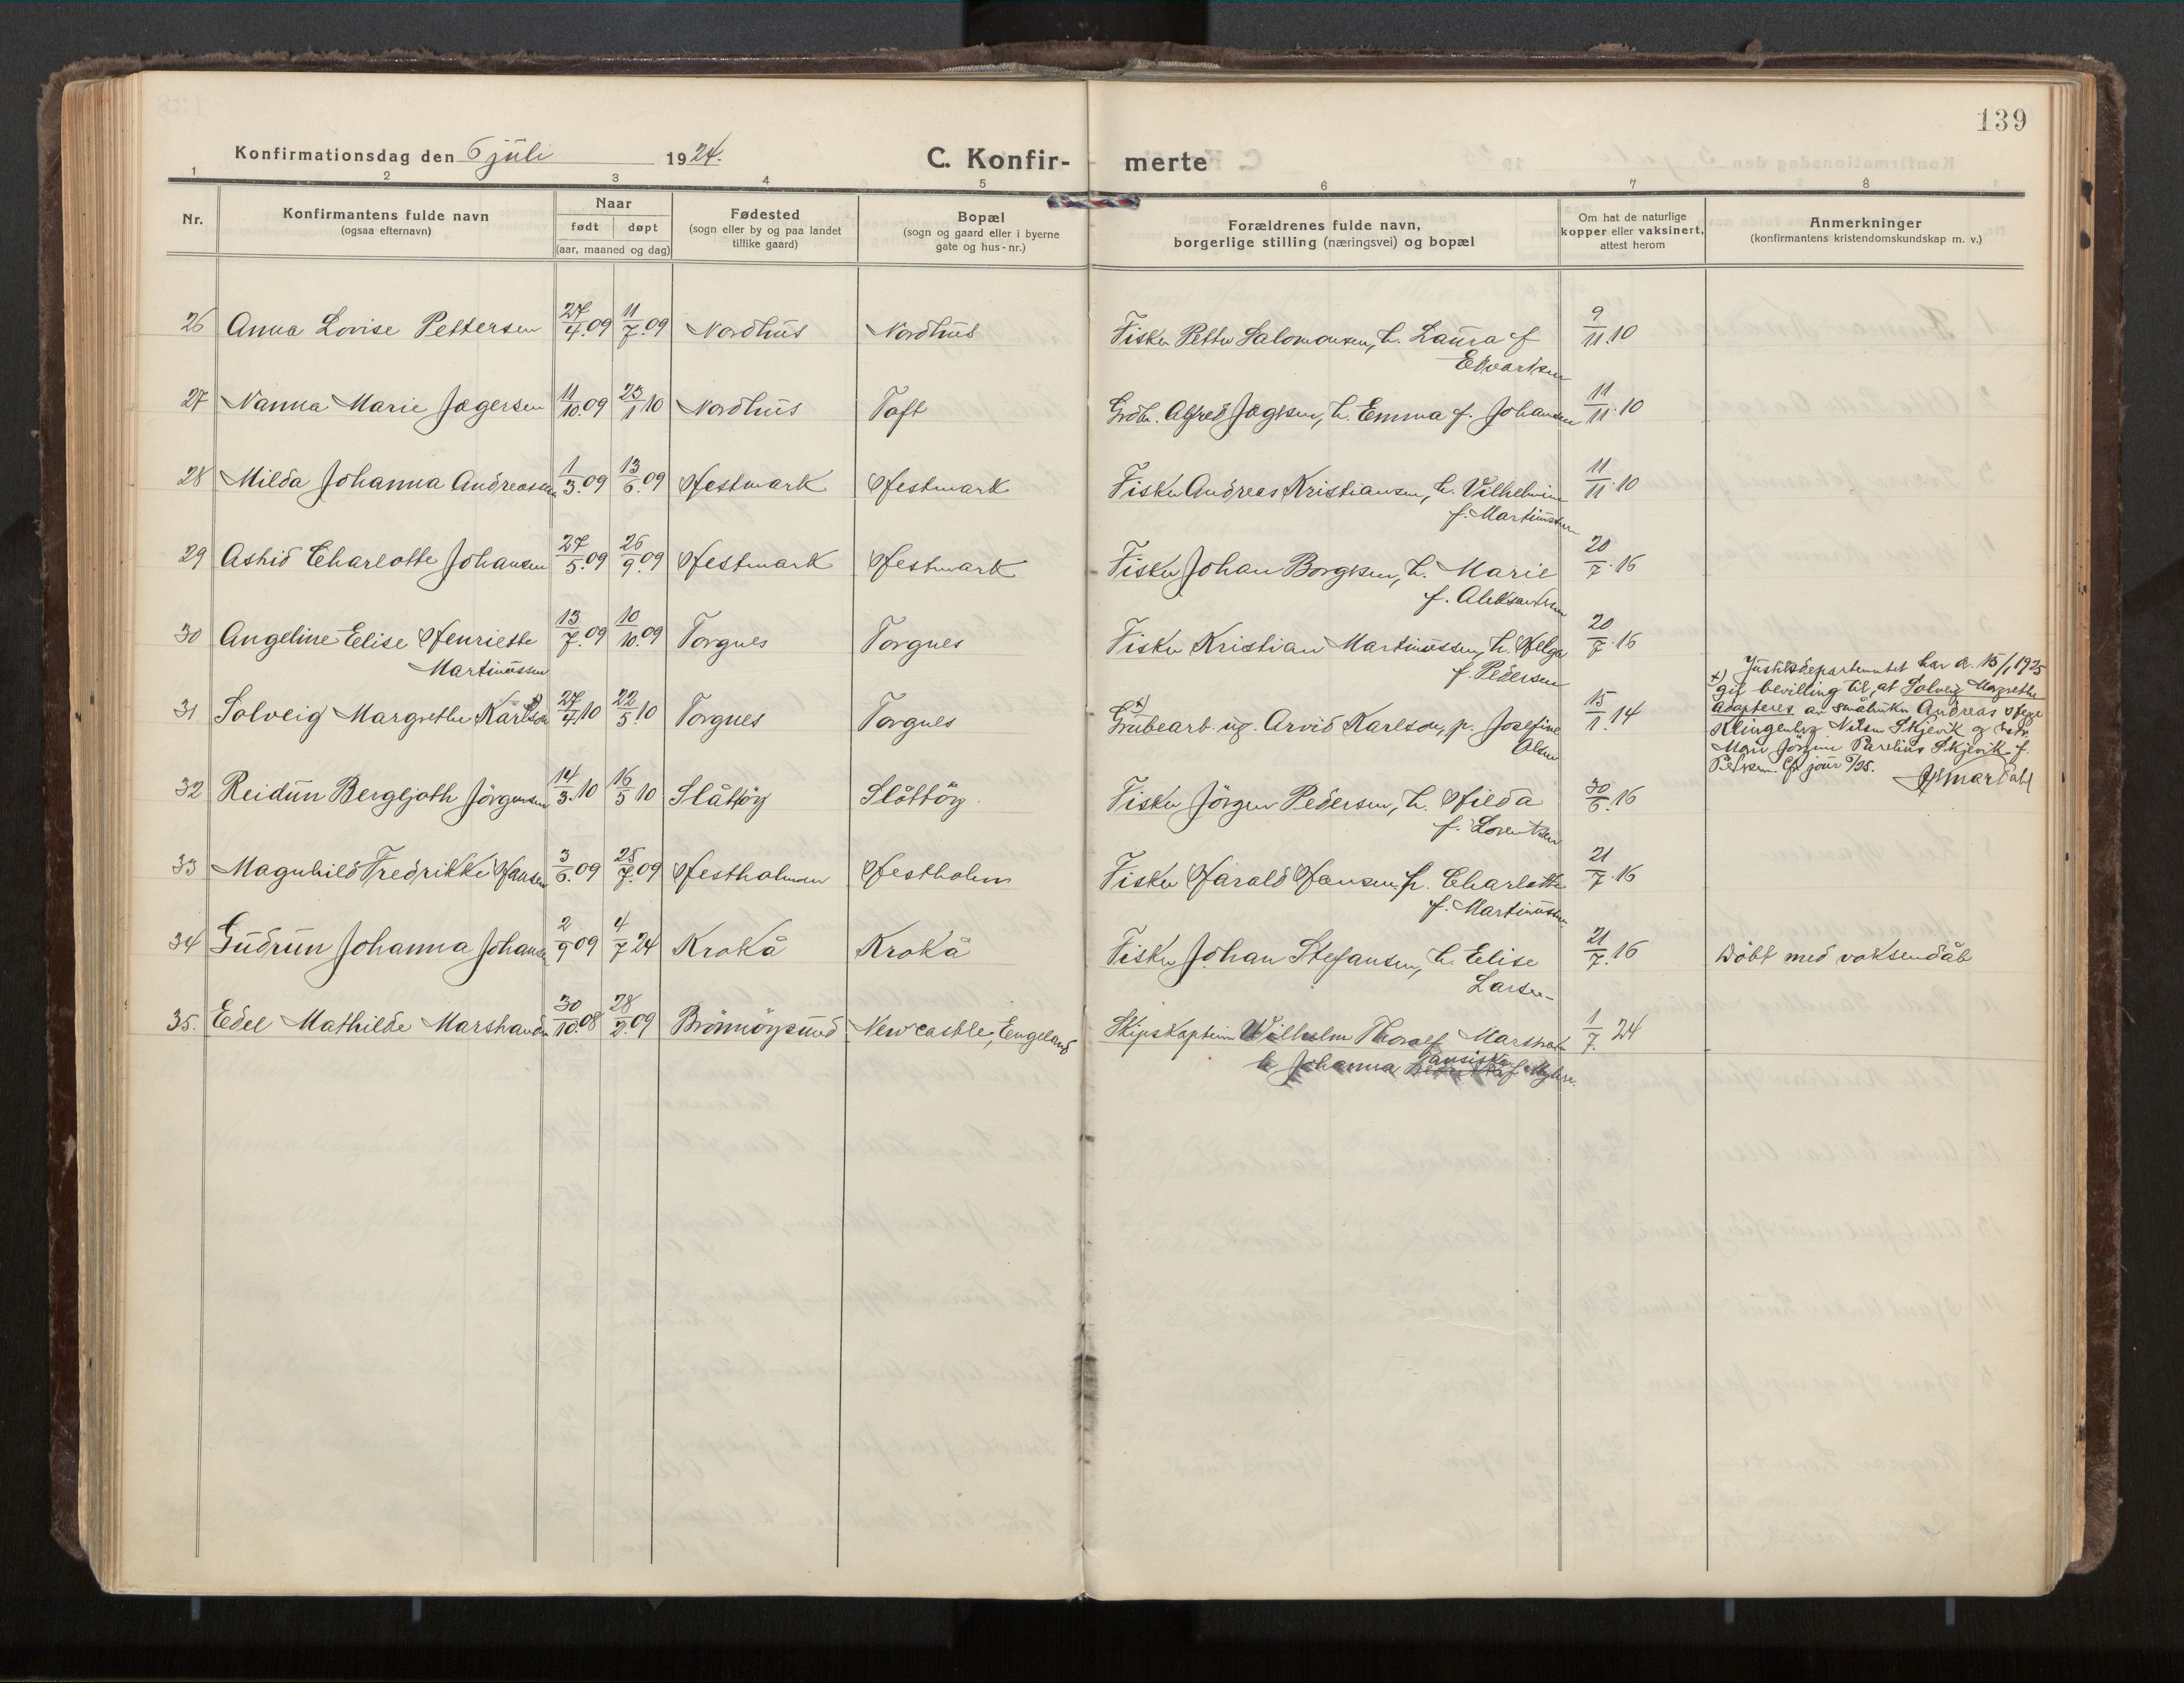 139
Konfirmationsdag den 6 juli 1924.
C. Konfir- merte
1 2 3 4 5 6 7 8
Nr.
Konfirmantens fulde navn
(ogsaa efternavn)
Naar
født døpt
(aar, maaned og dag)
Fødested
(sogn eller by og paa landet
tillike gaard)
Bopæl
(sogn og gaard eller i byerne
gate og hus-nr.)
Forældrenes fulde navn,
borgerlige stilling (næringsvei) og bopæl
Om hat de naturlige
kopper eller vaksinert,
attest herom
Anmerkninger
(konfirmantens kristendomskundskap m. v.)
26 Anna Lovise Pettersen 27/4.09 11/7.09 Nordhus Nordhus Fisker Petter Salomonsen, h. Laura f 9/11.10
Edvartsen
27 Nanna Marie Jægersen 11/10.09 23/1 10 Nordhus Toft Grdbr. Alfred Jægersen, h. Emma f. Johansen 11/11.10
28 Milda Johanna Andreassen 1/3.09 13/6.09 Hestmark Hestmark Fisker Andreas Kristiansen, h. Vilhelmine 11/11.10
f. Martinussen
29 Astrid Charlotte Johansen 27/5.09 26/9.09 Hestmark Hestmark Fisker Johan Borgersen, h. Marie 20/7.16
f. Aleksandersen
30 Angeline Elise Henriette 13/7.09 10/10.09 Torgnes Torgnes Fisker Kristian Martinussen, h. Helga 20/7.16
Martinussen f. Pedersen
31 Solveig Margrethe Karlson x) 27/4.10 22/5.10 Torgnes Torgnes x) Grubearb. ug. Arvid Karlson, p. Josefine 15/1.14
Olsen
x) Justitsdepartementet har d. 15/1 1925
git bevilling til, at Solveig Margrethe
adapteres av småbruker Andreas Hege
Klingenberg Nilsen Skjevik og hustr.
Mari Jörgine Parelius Skjevik f.
Petersen. Cfr jour /25.
32 Reidun Bergljoth Jörgensen 14/3.10 16/5 10 Slåttöy Slåttöy Fisker Jörgen Pedersen, h. Hilda 30/6.16
f. Lorentsen
33 Magnhild Fredrikke Hansen 3/6.09 25/7.09 Hestholmen Hestholm Fisker Harald Hansen, h. Charlotte 21/7.16
f. Martinussen
34 Gudrun Johanna Johansen 2/9 09 4/7 24 Krokå Krokå Fisker Johan Stefansen, h. Elise 21/7.16 Döbt med voksendåb
Larsen
35. Edel Mathilde Marshand 30/10.08 28/2.09 Brönnöysund Newcastle, Engeland Skipskaptein Wilhelm Thoralf 1/7. 24
h Johanna